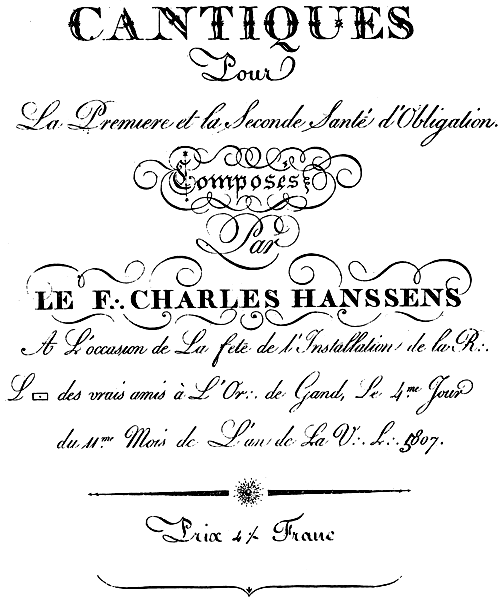 CANTIQUES
Pour
La Premiere et la Seconde Santé d'Obligation.
Composés
Par
LE F∴ CHARLES HANSSENS
A L'occasion de La fete de l'Installation de la R∴
L ▭ des vrais amis à L'Or∴ de Gand, Le 4.me Jour
du 11.me Mois de L'an de La V∴ L∴ 5807.
Prix 4/- Franc